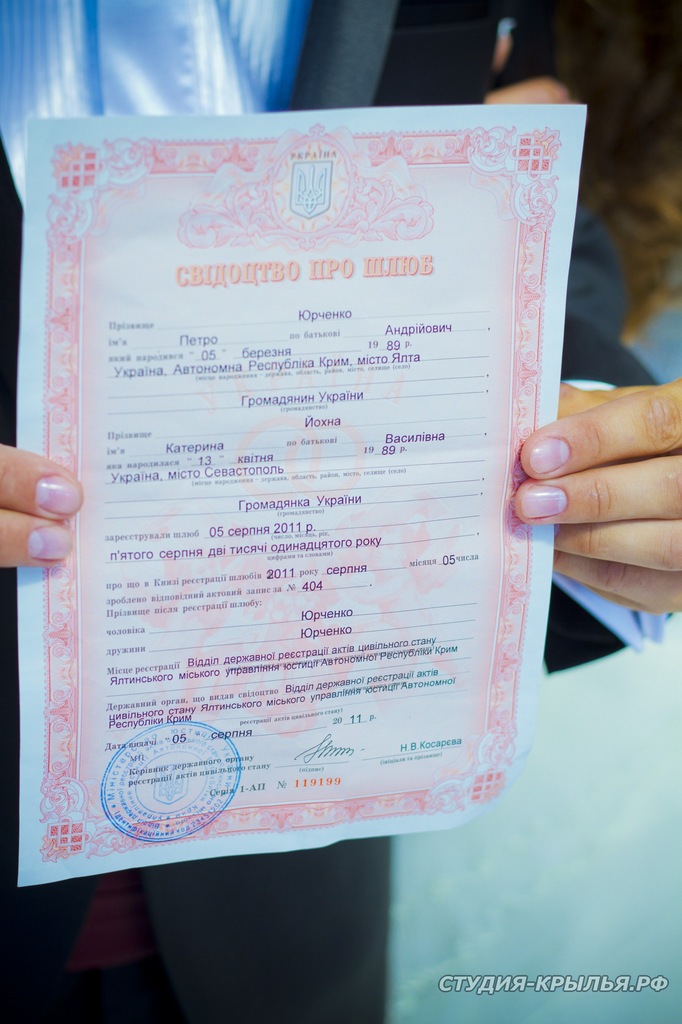 УКРАЇНА
СВІДОЦТВО ПРО ШЛЮБ
Прізвище Юрченко
ім'я Петро по батькові Андрійович
який народився "05" березня 1989 р.
Україна, Автономна Республіка Крим, місто Ялта
(місце народження - держава, область, район, місто, селище (село)
Громадянин України
(громадянство)
Прізвище Йохна
ім'я Катерина по батькові Василівна
яка народилася "13" квітня 1989 р.
Україна, місто Севастополь
(місце народження - держава, область, район, місто, селище (село)
Громадянка України
(громадянство)
зареєстрували шлюб 05 серпня 2011 р.
(число, місяць, рік,
п'ятого серпня дві тисячі одинадцятого року
цифрами та словами)
про що в Книзі реєстрації шлюбів 2011 року серпня місяця 05 числа
зроблено відповідний актовий запис № 404
Прізвище після реєстрації шлюбу:
чоловіка Юрченко
дружини Юрченко
Місце реєстрації Відділ державної реєстрації актів цивільного стану
Ялтинського міського управління юстиції Автономної Республіки Крим
Державний орган, що видав свідоцтво Відділ державної реєстрації актів
цивільного стану Ялтинського міського управління юстиції Автономної
Республіки Крим
реєстрації актів цивільного стану)
Дата видачі "05" серпня 2011 р.
МП
Керівник державного органу
реєстрації актів цивільного стану
(підпис)
Н.В.Косарєва
(ініціали та прізвище)
Серія 1-АП № 119199
СТУДИЯ-КРЫЛЬЯ.РФ